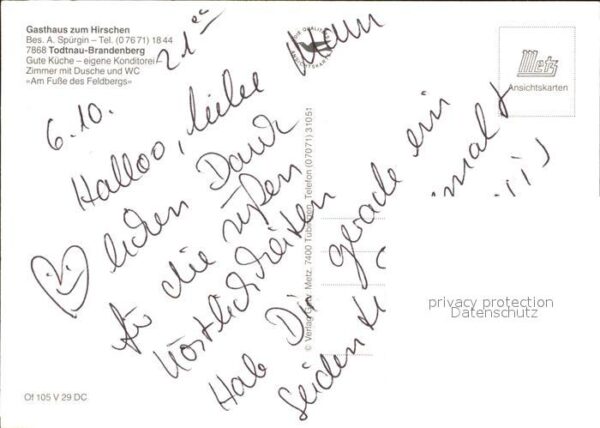 Gasthaus zum Hirschen
Bes. A. Spürgin – Tel. (0 76 71) 18 44
7868 Todtnau-Brandenberg
Gute Küche – eigene Konditorei
Zimmer mit Dusche und WC
«Am Fuße des Feldbergs»
Metz
Ansichtskarten
6.10. 21°°
Halloo, liebe Mam
♡lichen Dank
für die süßen
Köstlichkeiten
Hab Dir gerade ein
Seiden
mal
© Verlag Metz, 7400 Tübingen, Telefon (07071) 31051
privacy protection
Datenschutz
Of 105 V 29 DC